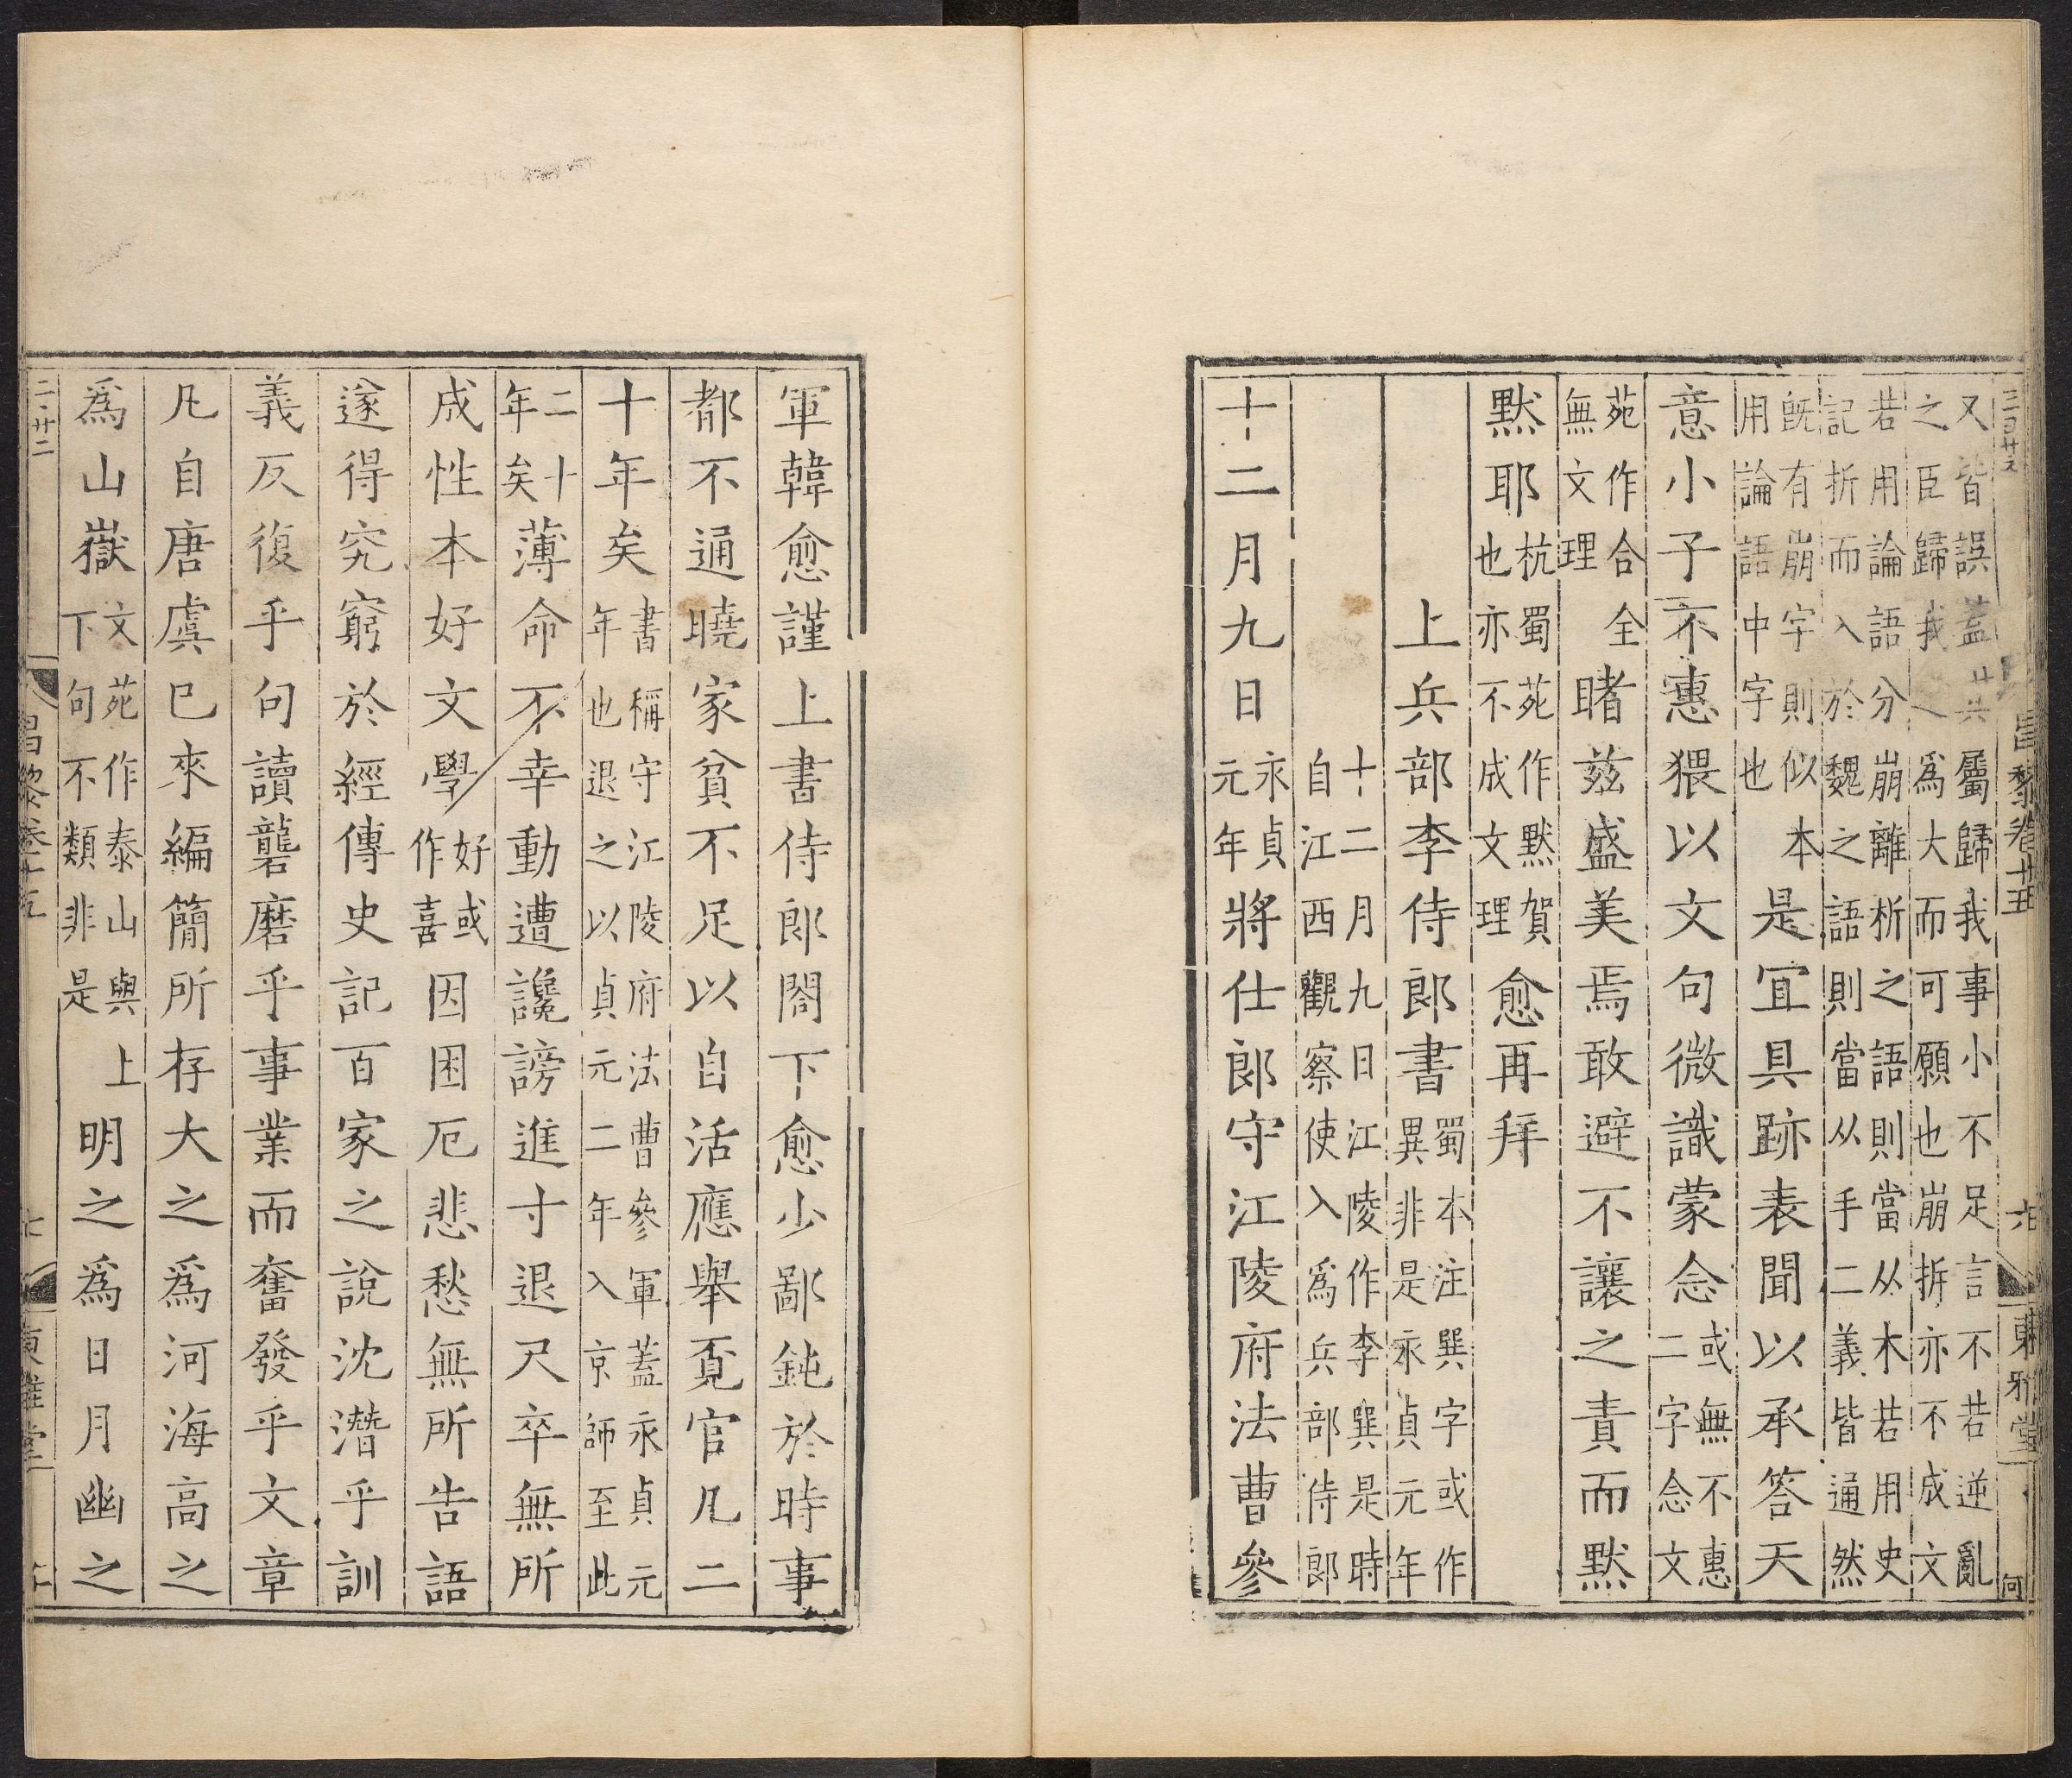 又皆誤蓋廿共屬歸我事小不足言不若逆亂
之臣歸我之爲大而可願也崩拆亦不成文
若用論語分崩離析之語則當从木若用史
記折而入於魏之語則當从手二義皆通然
旣有崩字則似本
用論語中字也
是宜具跡表聞以承答天
意小子不惪猥以文句微識蒙念或無不惠二字念文
苑作合全無文理睹茲盛美焉敢避不讓之責而默
默耶杭蜀苑作默賀也亦不成文理愈再拜
上兵部李侍郎書蜀本注巽字或作異非是永貞元年
十二月九日江陵作李巽是時
自江西觀察使入爲兵部侍郎
十二月九日永貞元年將仕郎守江陵府法曹參
昌黎卷十五
六
東雅堂
何
軍韓愈謹上書侍郎閤下愈少鄙鈍於時事
都不通曉家貧不足以自活應舉覓官凡二
十年矣書稱守江陵府法曹參軍蓋永貞元年也退之以貞元二年入京師至此
二十年矣薄命不幸動遭讒謗進寸退尺卒無所
成性本好文學好或作喜因困厄悲愁無所告語
遂得究窮於經傳史記百家之說沈潛乎訓
義反復乎句讀礱磨乎事業而奮發乎文章
凡自唐虞已來編簡所存大之爲河海高之
爲山嶽文苑作泰山與上下句不類非是明之爲日月幽之
二廿二
昌黎卷十五
七
東雅堂